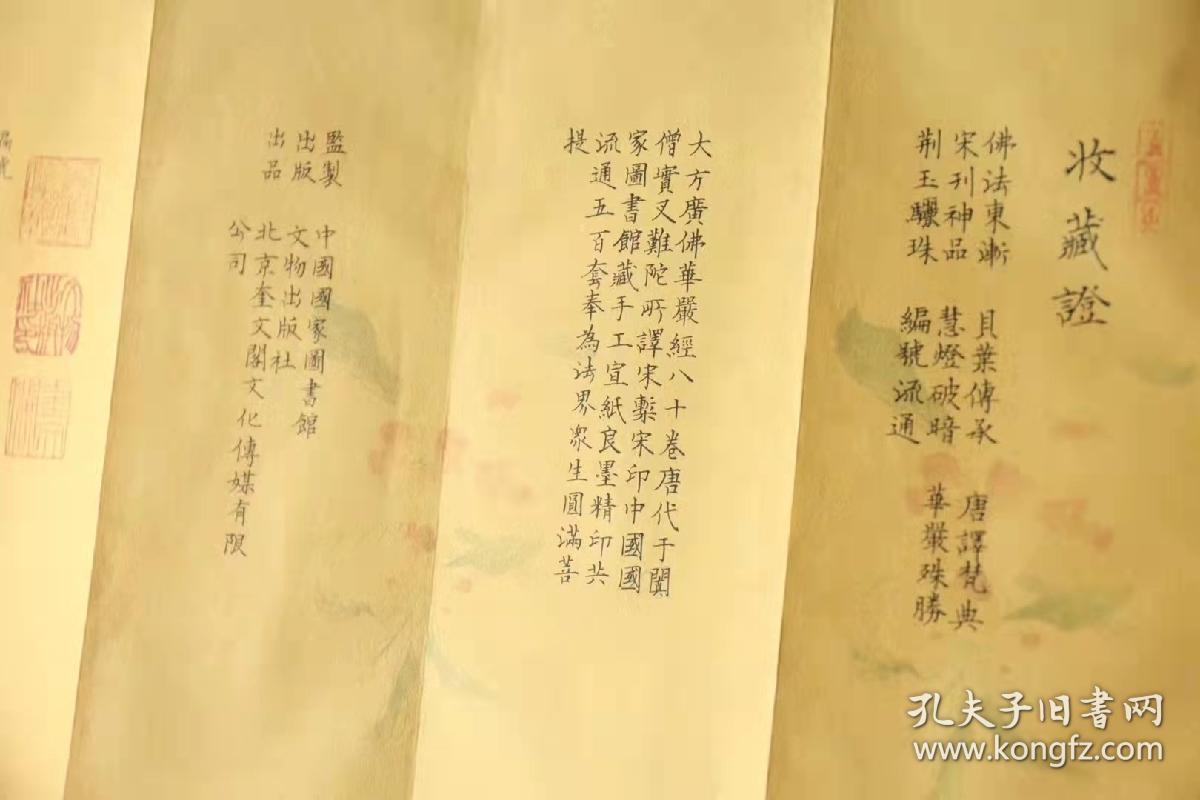 收藏證
佛法東漸 貝葉傳承 唐譯梵典
宋刊神品 慧燈破暗 華嚴殊勝
荆玉驪珠 編號流通
大方廣佛華嚴經八十卷唐代于闐
僧實叉難陀所譯宋槧宋印中國國
家圖書館藏手工宣紙良墨精印共
流通五百套奉為法界眾生圓滿菩
提
監製 中國國家圖書館
出版 文物出版社
出品 北京奎文閣文化傳媒有限
公司
編號
孔夫子旧书网
www.kongfz.com